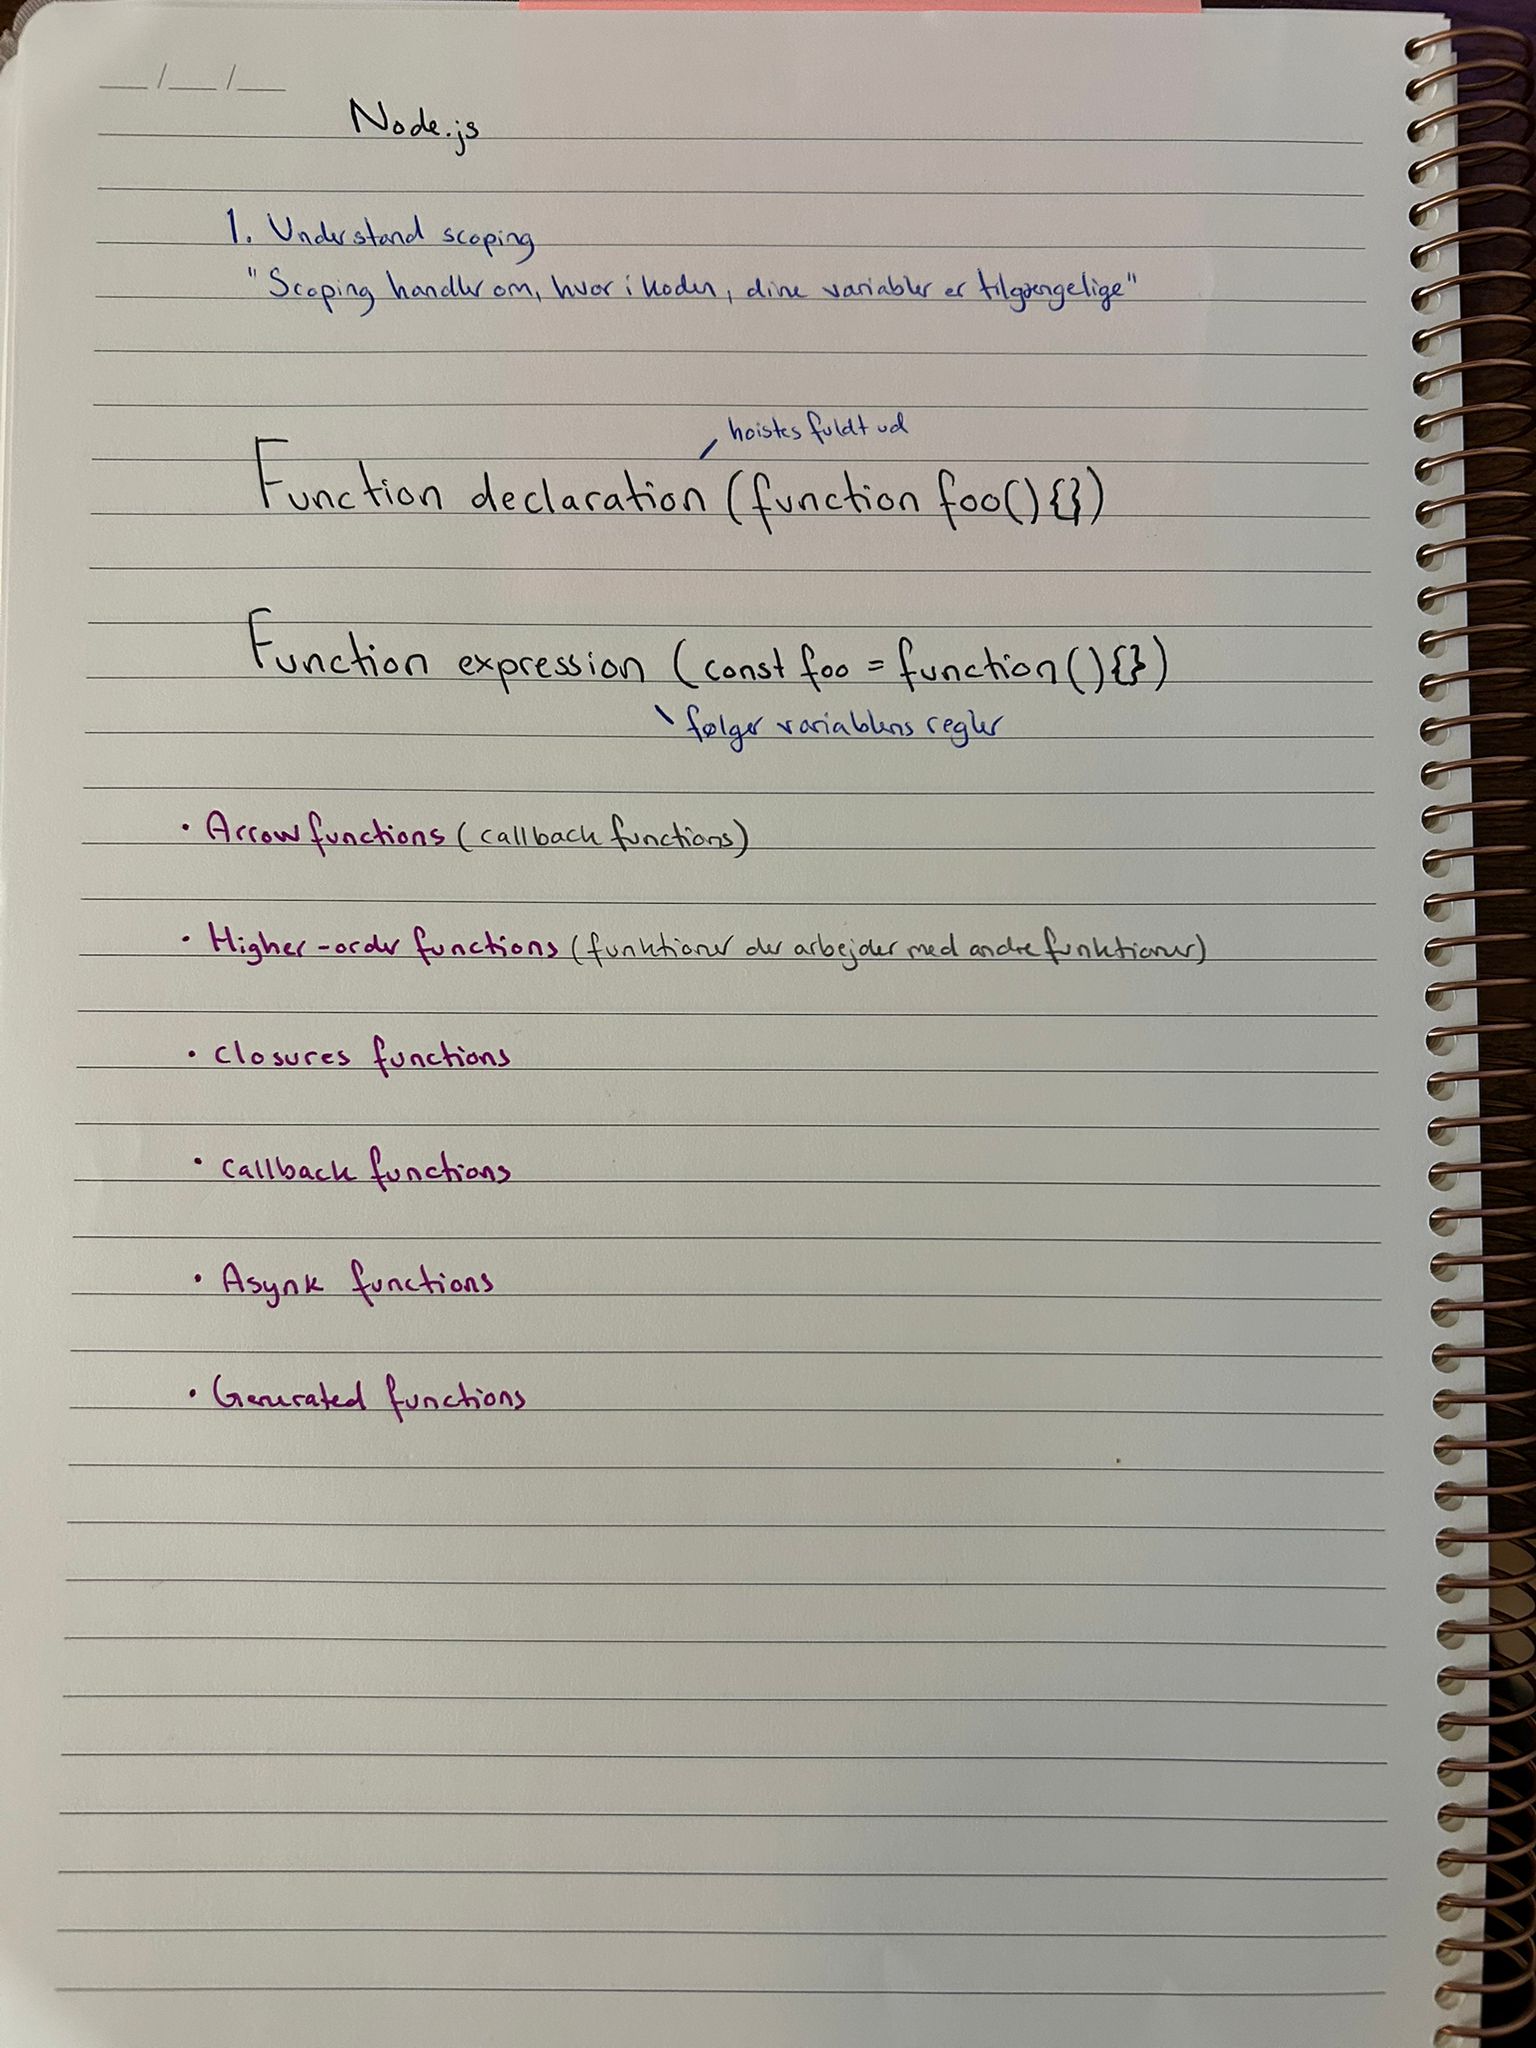 __/__/__
Node.js
1. Understand scoping
"Scoping handler om, hvor i koden, dine variabler er tilgængelige"
hoistes fuldt ud
Function declaration (function foo(){})
Function expression (const foo = function(){})
følger variablens regler
• Arrow functions (callback functions)
• Higher-order functions (funktioner der arbejder med andre funktioner)
• closures functions
• callback functions
• Asynk functions
• Generated functions